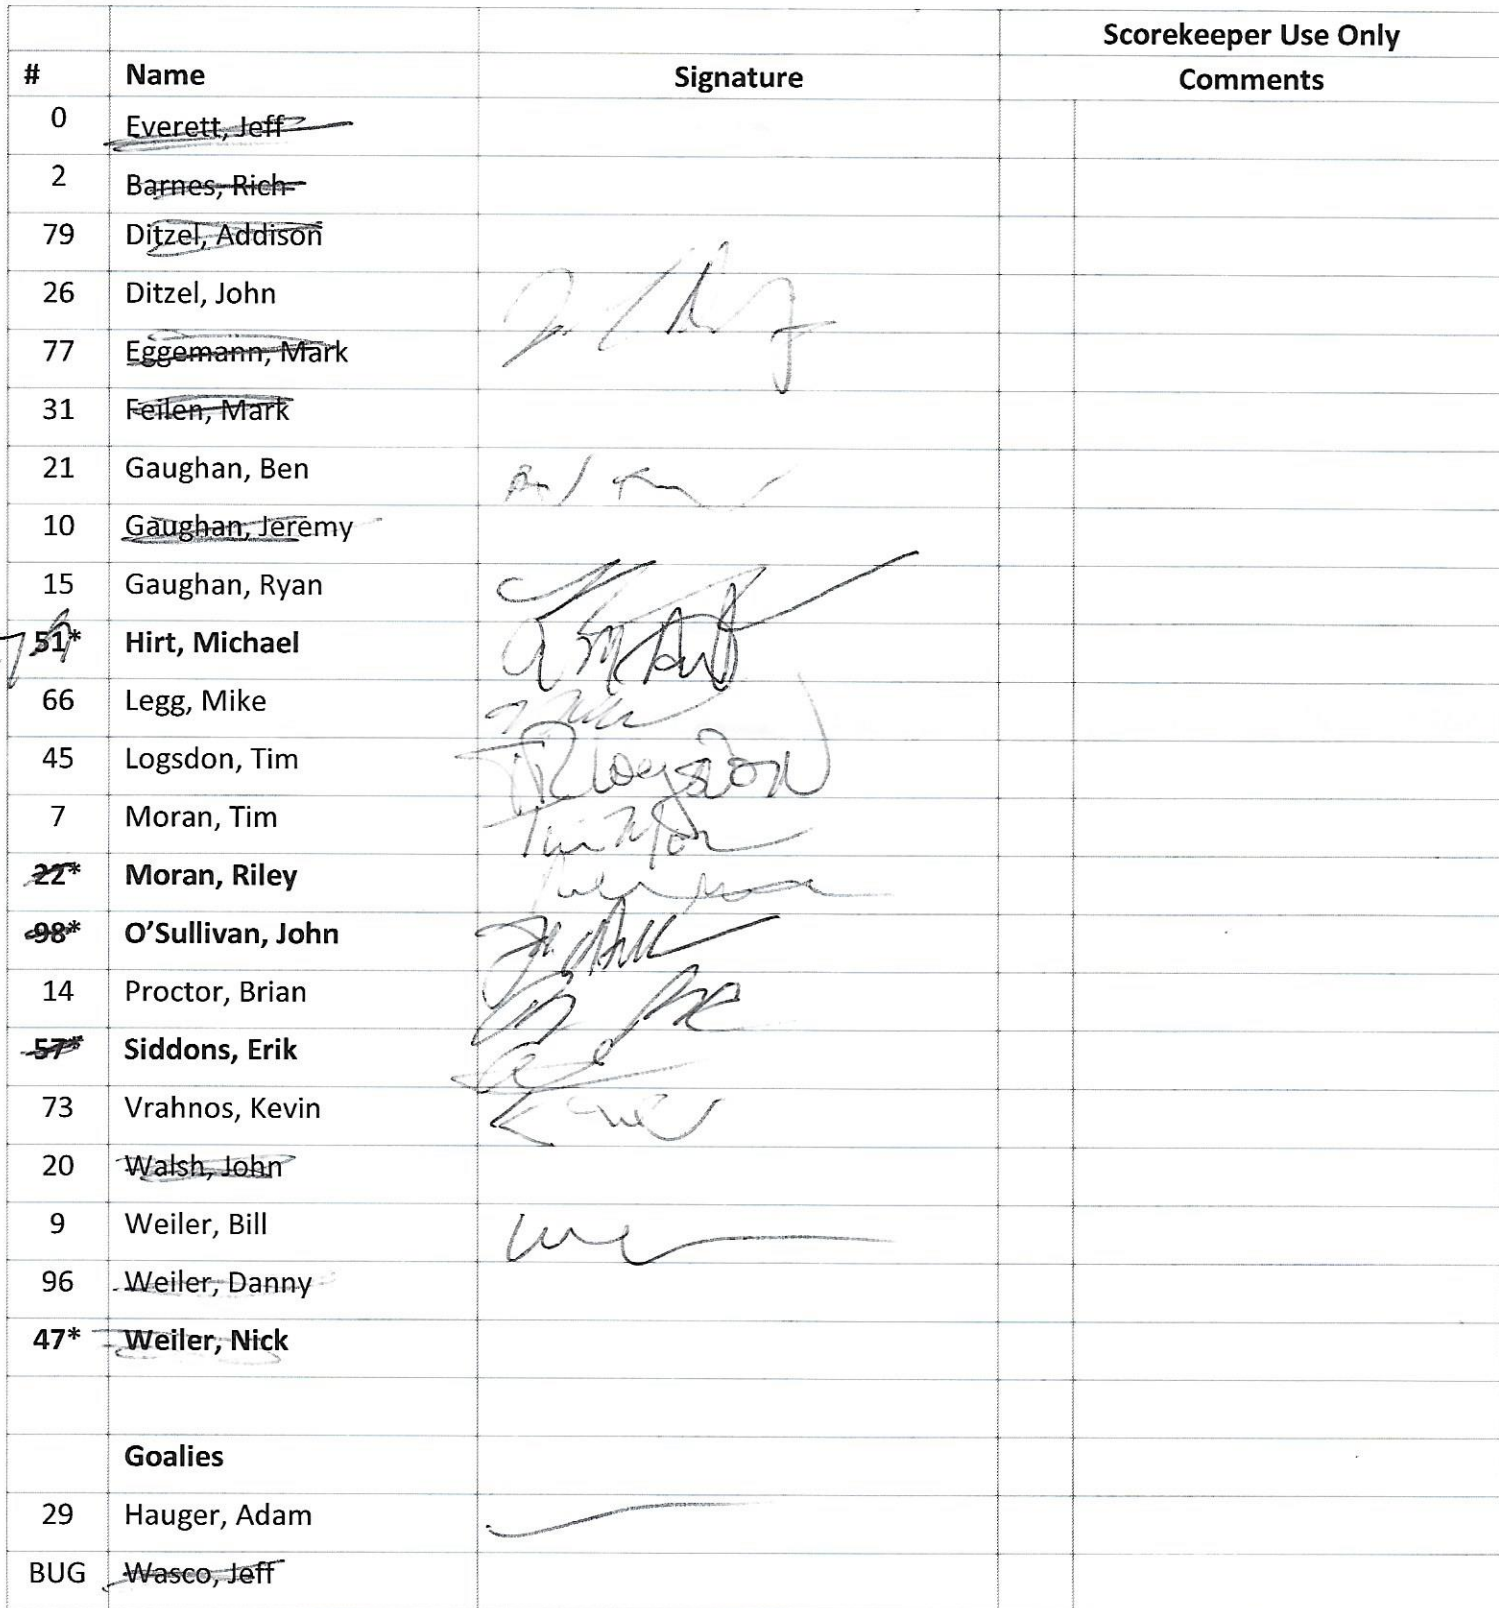 Scorekeeper Use Only
# Name Signature Comments
0 Everett, Jeff
2 Barnes, Rich
79 Ditzel, Addison
26 Ditzel, John
77 Eggemann, Mark
31 Feilen, Mark
21 Gaughan, Ben
10 Gaughan, Jeremy
15 Gaughan, Ryan
51* Hirt, Michael
66 Legg, Mike
45 Logsdon, Tim TR Logsdon
7 Moran, Tim Tim Mor
22* Moran, Riley
98* O’Sullivan, John
14 Proctor, Brian
57* Siddons, Erik
73 Vrahnos, Kevin
20 Walsh, John
9 Weiler, Bill
96 Weiler, Danny
47* Weiler, Nick
Goalies
29 Hauger, Adam
BUG Wasco, Jeff